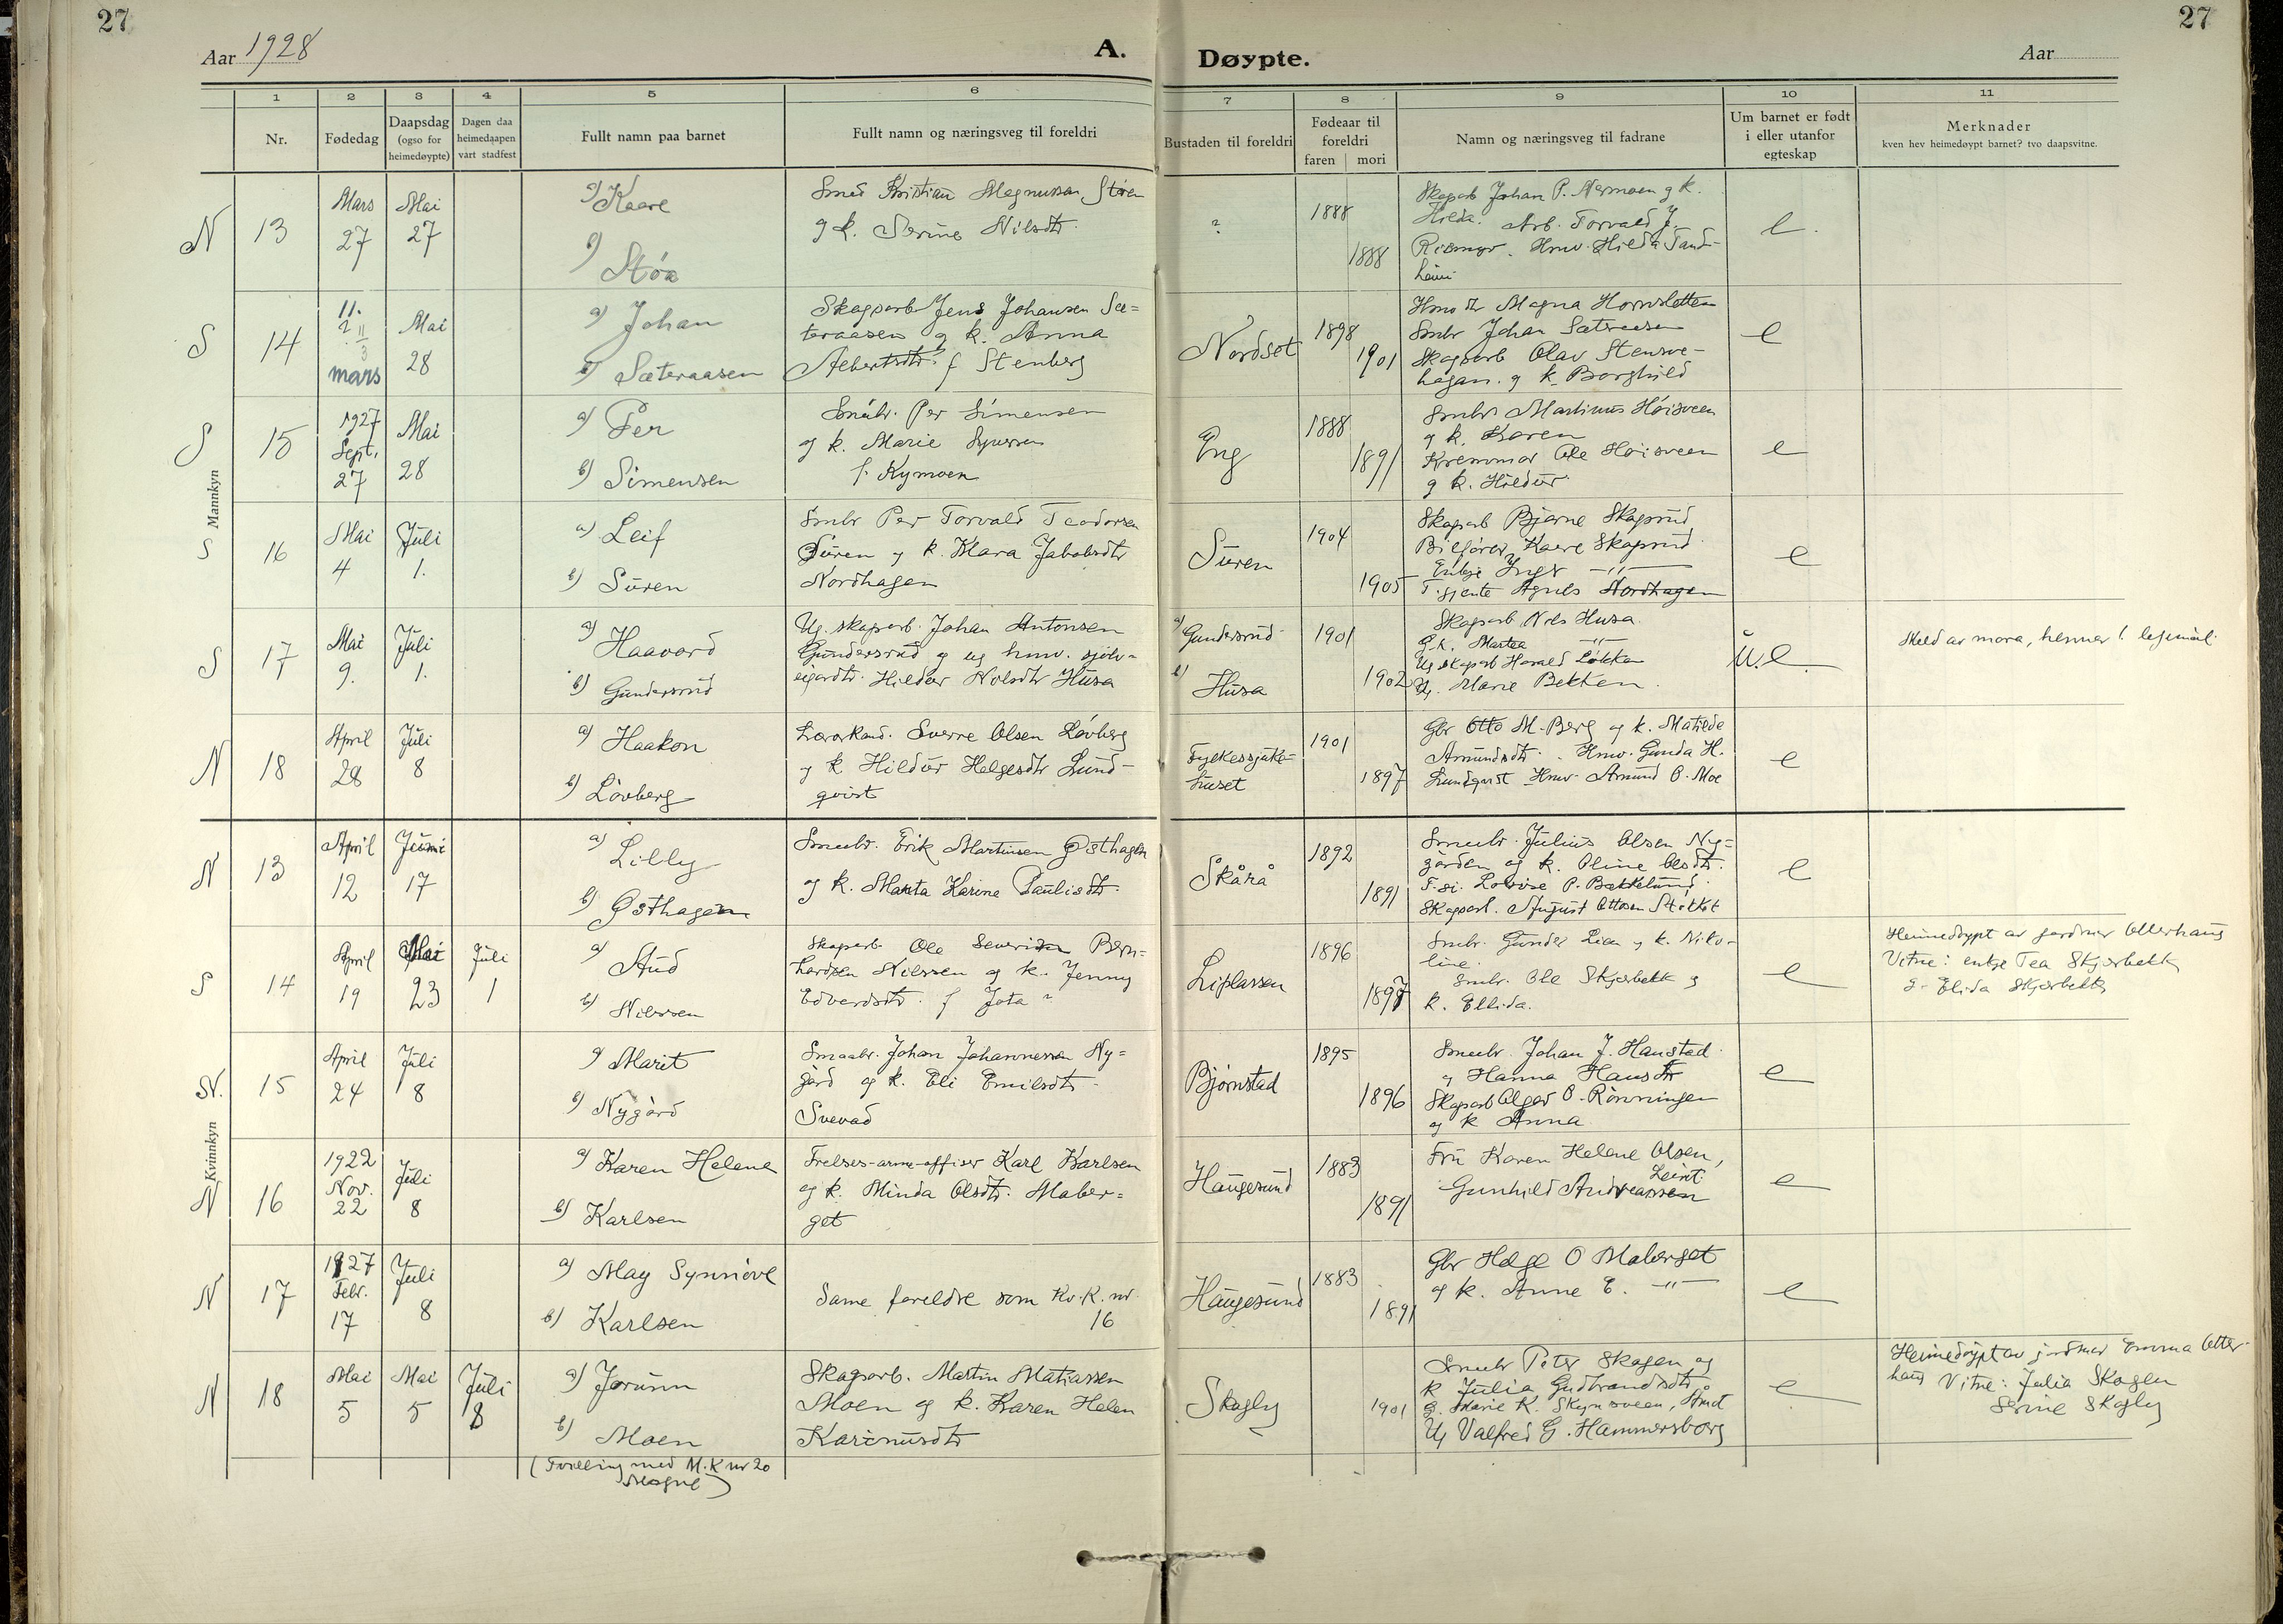 27
27
Aar 1928
A.
Døypte.
Aar
1 2 3 4 5 6 7 8 9 10 11
Nr.
Fødedag
Daapsdag (ogso for heimedøypte)
Dagen daa heimedaapen vart stadfest
Fullt namn paa barnet
Fullt namn og næringsveg til foreldri
Bustaden til foreldri
Fødeaar til foreldri
faren mori
Namn og næringsveg til fadrane
Um barnet er født i eller utanfor egteskap
Merknader
kven hev heimedøypt barnet? tvo daapsvitne.
Mannkyn
N 13
Mars 27
Mai 27
a) Kaare
b) Stöa
Smed Kristian Magnussen Støen
g k. Serine Nilsdtr.
?
1888
1888
Skogarb Johan P. Nermoen g k.
Hilda. Arb. Torvald J.
Hmv. Hilda Sand-
heim
e.
S 14
11. mars
Mai 28
a) Johan
b) Sæteraasen
Skogsarb Jens Johansen Sæ=
teraasen og k. Anna
Albertsdtr. f Stenberg
Nordset
1898
1901
Hmv dtr Magna Hornsletten
Smbr Johan Sæteraasen
Skogsarb Olav Stensve-
hagan. g k. Borghild
e
S 15
1927 Sept. 27
Mai 28
a) Per
b) Simensen
Småbr. Per Simensen
og k. Marie Syversen
f. Kymoen
Eng
1888
1891
Smbr Martinus Höisveen
og k. Karen
Kremmar Ole Höisveen
g k. Hildur
e
S 16
Mai 4
Juli 1.
a) Leif
b) Süren
Smbr Per Torvald Teodorsen
Süren g k. Klara Jakobsdtr
Nordhagen
Süren
1904
1905
Skogarb Bjarne Skaprud
Bilförer Kaare Skaprud
Enkje Inga —"—
T.gjente Agnes Nordhagen
e
S 17
Mai 9.
Juli 1.
a) Haavard
b) Gundersrud
Ug. skogarb. Johan Antonsen
Gundersrud g ug hmv. sjölv-
eigardtr. Hildur Nilsdtr Husa
a) Gundersrud
b) Husa
1901
1902
Skogarb Nils Husa
G.k. Martea —"—
Ug skogarb Harald Løkken
Ug. Marie Bekken.
U.e.
Meld av mora, hennar 1. leiemål.
N 18
April 28
Juli 8
a) Haakon
b) Lövberg
Lærarkand. Sverre Olsen Lövberg
g k Hildur Helgesdtr Lund-
qvist
Fylkessjuke-
huset
1901
1897
Gbr Otto M. Berg og k. Matilde
Amundsdtr. Hmv. Gunda H.
Lundqvist Hmv. Amund O. Moe
e
Kvinnkyn
N 13
April 12
Juni 17
a) Lilly
b) Østhagen
Smaabr. Erik Martinsen Østhagen
og k. Marta Karine Paulisdtr.
Skårå
1892
1891
Smaabr. Julius Olsen Nyg=
gården og k. Oline Olsdtr.
T.gj. Lovise P. Bækkelund
Skogsarb. August Ottosen Stöttet
e
S 14
April 19
Mai 23
Juli 1
a) Aud
b) Nilssen
Skogarb Ole Severin Bern-
hardsen Nilssen og k. Jenny
Edvardsdtr. f Jota ?
Liplassen
1896
1897
Smbr. Gunder Lien g k. Niko-
line.
Smbr. Ole Skjærbekk g
k. Ellida.
e
Heimedöypt av jordmor Otterhaug
Vitne: enkje Tea Skjærbekk
g Elida Skjærbekk
N. 15
April 24
Juli 8
a) Marit
b) Nygård
Smaabr. Johan Johannessen Ny=
gård og k. Eli Emilsdtr
Svevad
Bjørnstad
1895
1896
Smaabr. Johan J. Hanstad
g Hanna Hansdtr
Skogarb Alger O. Rönningen
og k Anna
e
N 16
1922 Nov. 22
Juli 8
a) Karen Helene
b) Karlsen
Frelses-arme-offiser Karl Karlsen
og k. Minda Olsdtr. Maber=
get
Haugesund
1883
1891
Fru Karen Helene Olsen,
Leint.
Gunhild Andreassen
e
N 17
1927 Febr. 17
Juli 8
a) May Synnöve
b) Karlsen
Same foreldre som Kv.K. nr.
16
Haugesund
1883
1891
Gbr Helge O Maberget
og k. Anne E. —"—
e
N 18
Mai 5
Mai 5
Juli 8
a) Jorunn
b) Moen
(Tvilling med M.K nr 20
Magne)
Skogsarb. Martin Matiassen
Moen og k. Karen Helen
Karinusdtr
Skogly
1901
Smaabr Peter Skogen og
k Julia Gudbrandsdtr
G. Marie K. Skynsveen, Aust
Ug Valfred G. Hammersborg
e
Heimedöypt av jordmor Emma Otter-
haug Vitne: Julia Skogen
Serine Skogly